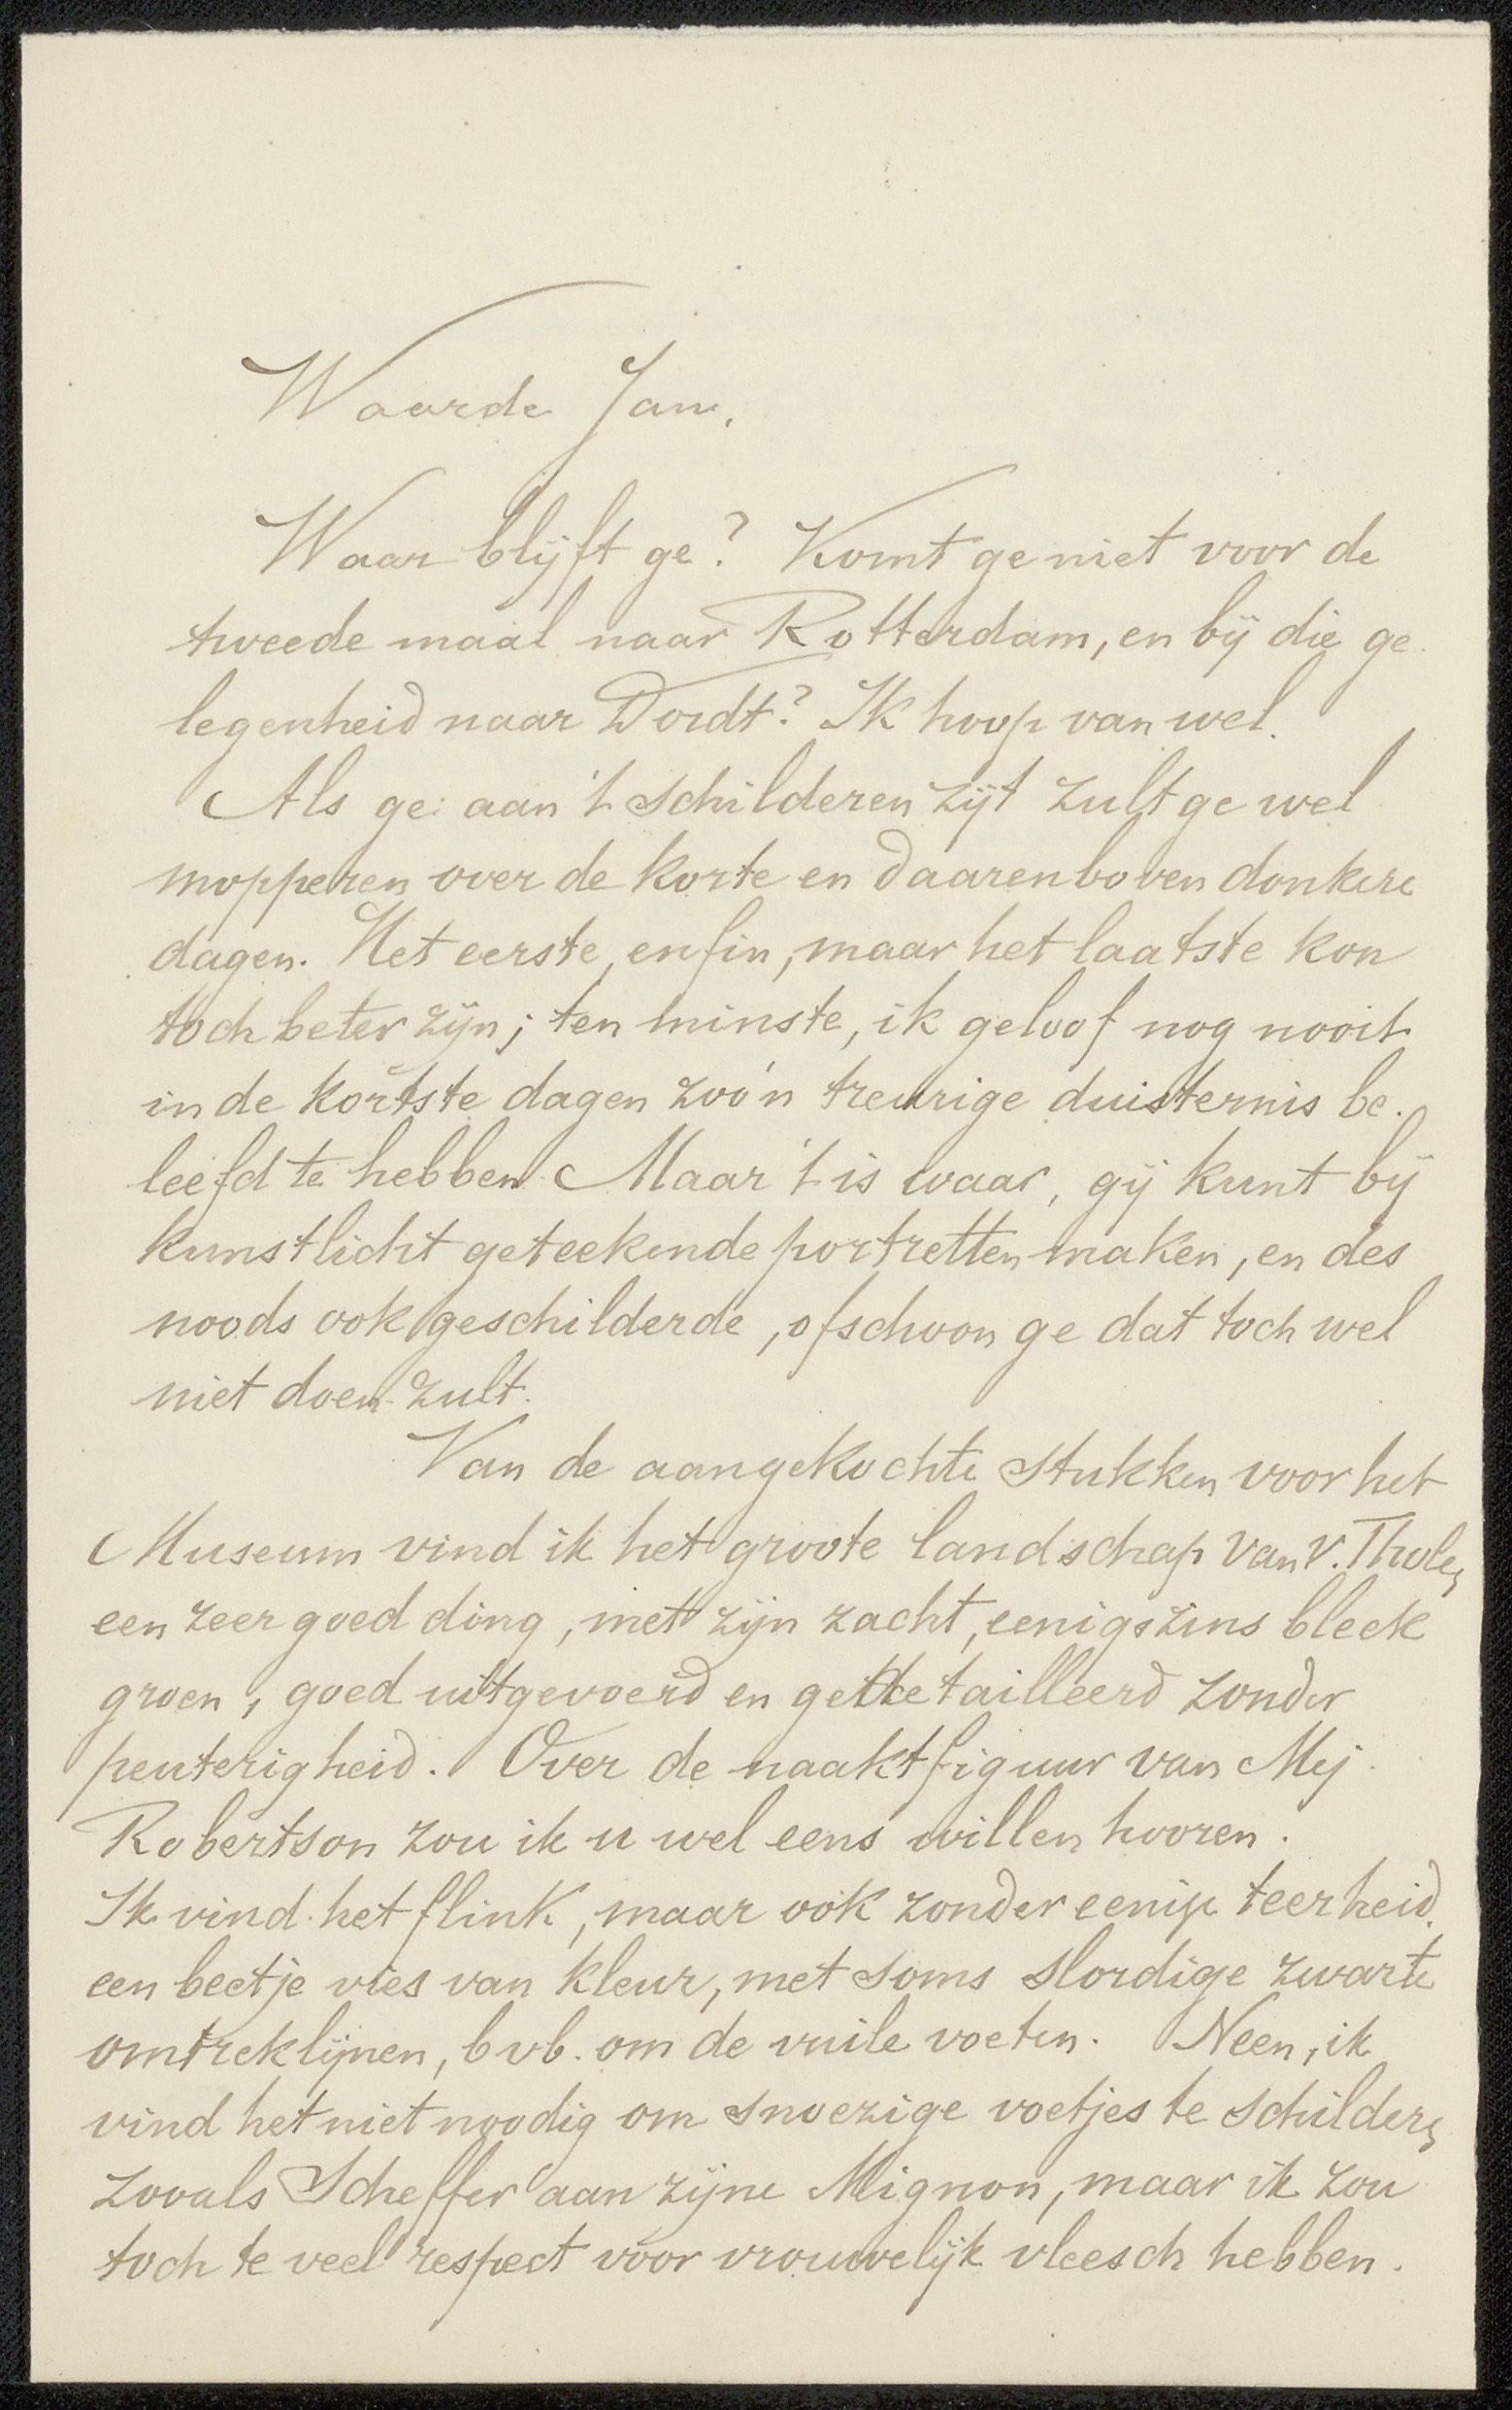 Waarde Jan,
Waar blijft ge? Komt ge niet voor de
tweede maal naar Rotterdam, en bij die ge
legenheid naar Dordt? Ik hoop van wel.
Als ge aan 't schilderen zijt zult ge wel
mopperen over de korte en daarenboven donkere
dagen. Het eerste, enfin, maar het laatste kon
toch beter zijn; ten minste, ik geloof nog nooit
in de kortste dagen zoo'n treurige duisternis be.
leefd te hebben. Maar 't is waar, gij kunt bij
kunstlicht geteekende portretten maken, en des
noods ook geschilderde, ofschoon ge dat toch wel
niet doen zult.
Van de aangekochte stukken voor het
Museum vind ik het groote landschap van v. Tholen
een zeer goed ding, met zijn zacht, eenigszins bleek
groen, goed uitgevoerd en gedetailleerd zonder
peuterigheid. Over de naaktfiguur van Mej.
Robertson zou ik u wel eens willen hooren.
Ik vind het flink, maar ook zonder eenige teerheid,
een beetje vies van kleur, met soms slordige zwarte
omtreklijnen, bvb. om de vuile voeten. Neen, ik
vind het niet noodig om snoezige voetjes te schilderen
zooals Scheffer aan zijne Mignon, maar ik zou
toch te veel respect voor vrouwelijk vleesch hebben.